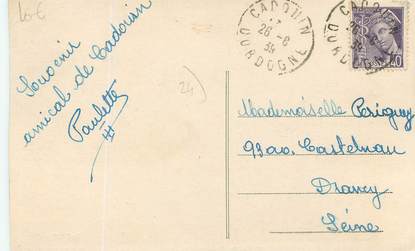 10 €
Souvenir
amical de Cadouin
Paulette
24)
CADOUIN
26-6
39
DORDOGNE
40
Mademoiselle Périguey
93 av. Castelnau
Drancy
Seine